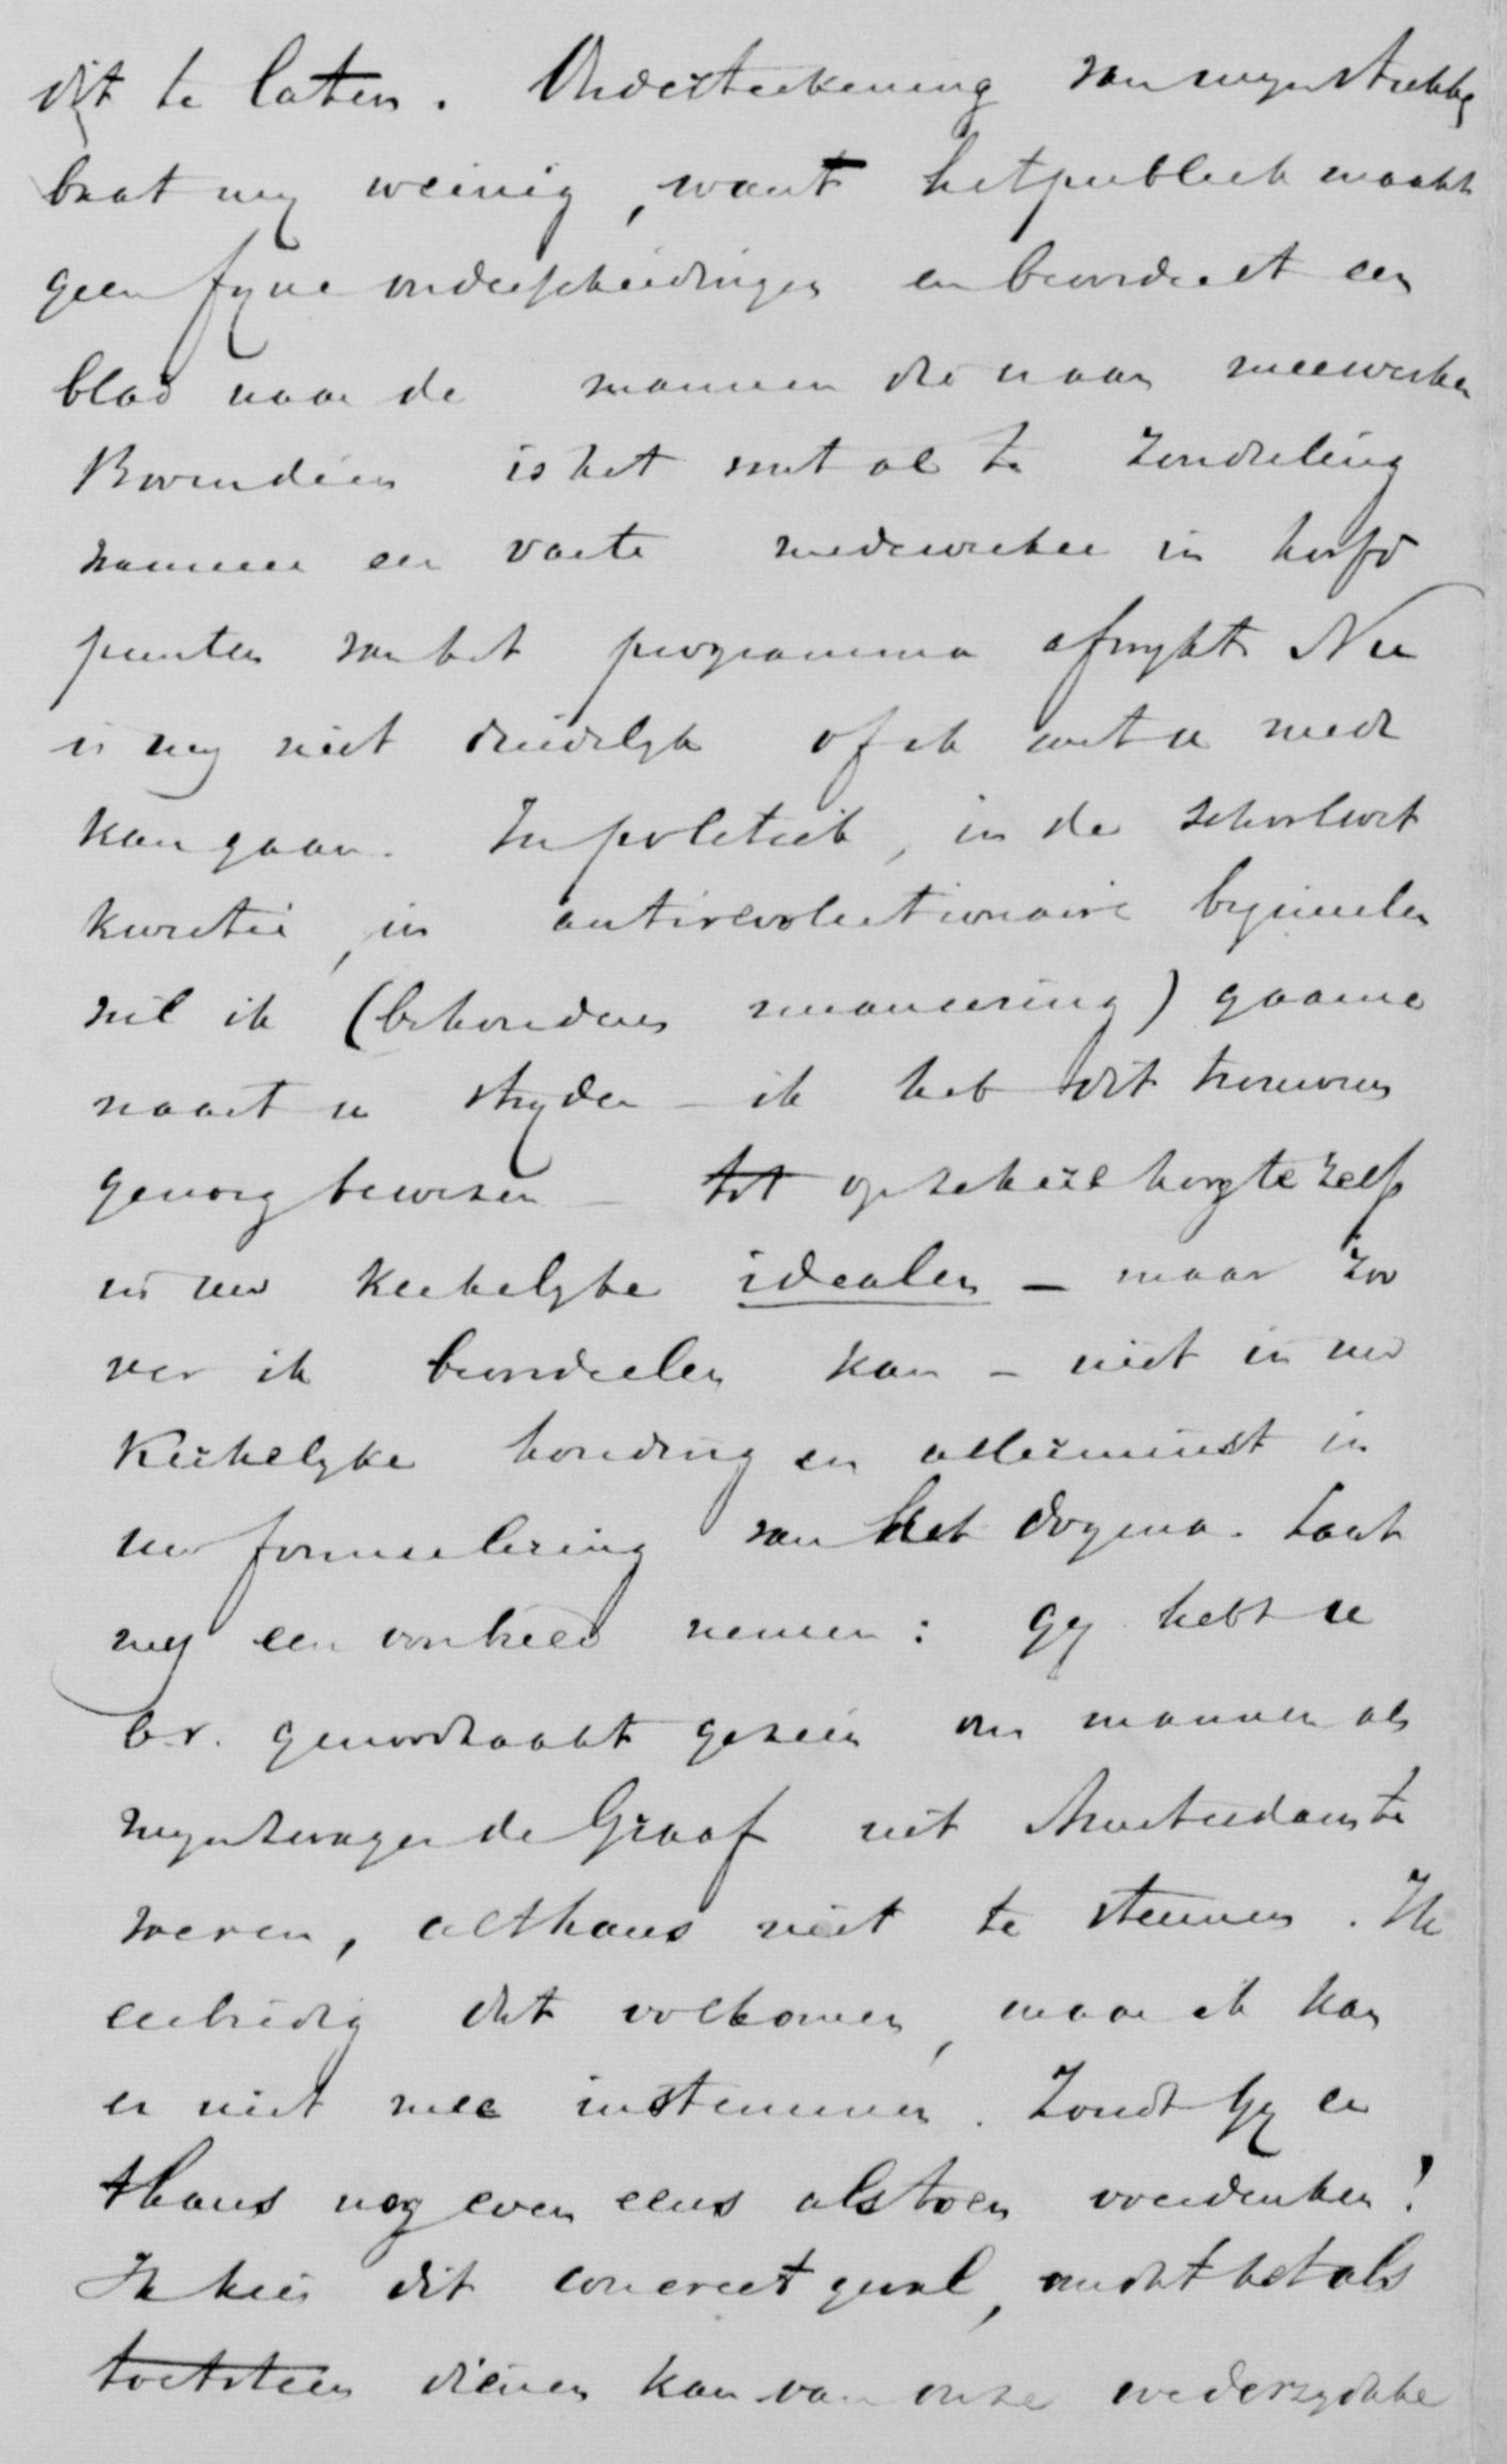 dit te laten. Onderteekening van mijn stukken
baat mij weinig, want het publiek maakt
geen fijne onderscheidingen en beoordeelt een
blad naar de mannen die er aan meewerken
Bovendien is het met al te zonderling
wanneer een vaste medewerker in hoofd
punten van het programma afwijkt. Nu
is mij niet duidelijk of ik met u mede
kan gaan. In politiek, in de schoolwet
kwestie, in antirevolutionaire beginselen
wil ik (behoudens nuanceering) gaarne
naast u strijden - ik heb dit trouwens
genoeg bewezen - tot op zekere hoogte zelfs
in uw kerkelijke idealen - maar zoo
ver ik beoordeelen kan - niet in uw
kerkelijke houding en allerminst in
uw formuleering van het dogma. Laat
mij een voorbeeld nemen: gij hebt u
b.v. genoodzaakt gezien om mannen als
mijn zwager de Graaf uit Amsterdam te
weren, althans niet te steunen. Ik
eerbiedig dit volkomen, maar ik kan
er niet mee instemmen. Zoudt Gij er
thans nog even eens als toen over denken?
Ik kies dit concreet geval, omdat het als
toetssteen dienen kan van onze wederzijdsche